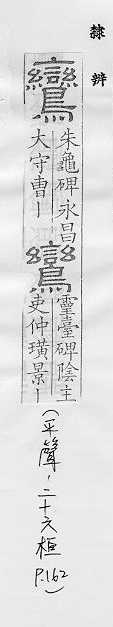 隸辨
鸞
朱龜碑永昌
大守曹丨
鸞
靈臺碑陰主
吏仲璜景丨
(平聲,二十六桓 P.162)